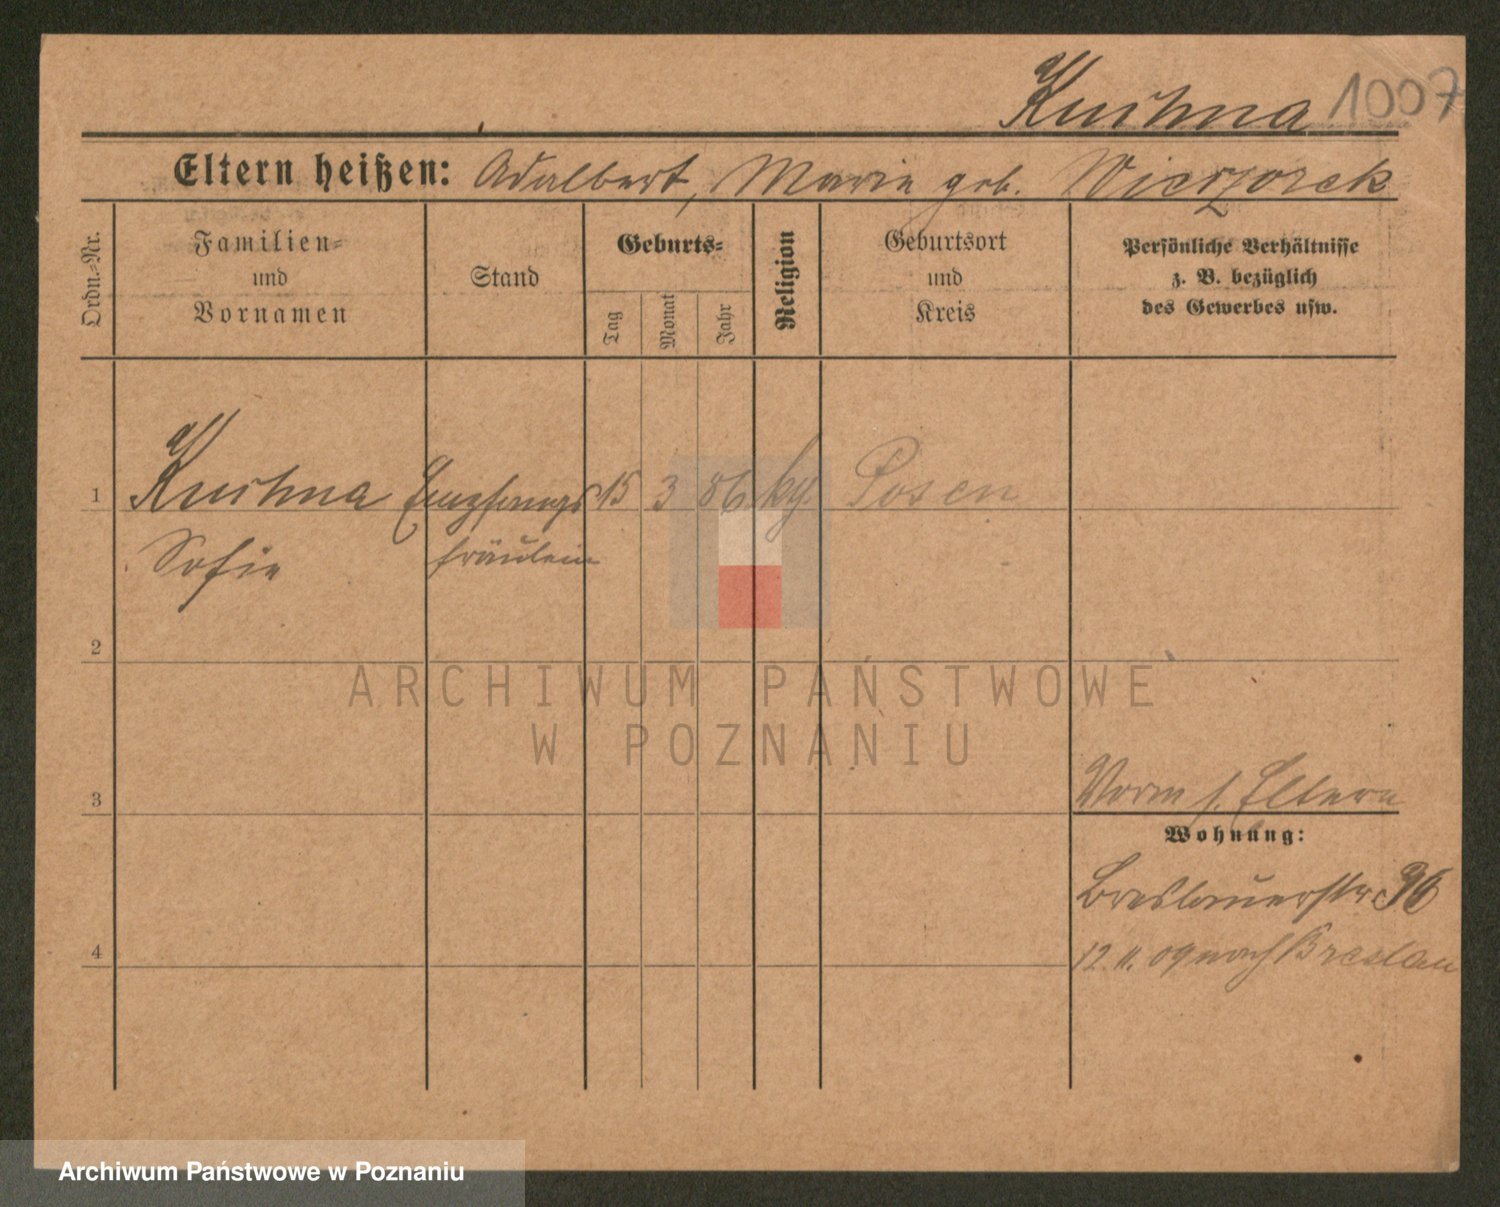 Kuśhna 1007
Eltern heißen: Adalbert, Marie geb. Wierzorek
Ordn.-Nr.
Familien-
und
Vornamen
Stand
Geburts-
Tag
Monat
Jahr
Religion
Geburtsort
und
Kreis
Persönliche Verhältnisse
z. B. bezüglich
des Gewerbes usw.
1 Kuśhna Empfangs 15 3 86 kg. Posen
Sofie fräulein
2
ARCHIWUM PAŃSTWOWE
W POZNANIU
3
Vorm s. Eltern
Wohnung:
Breslauerstr 36
4
12. 11. 09 nach Breslau
Archiwum Państwowe w Poznaniu